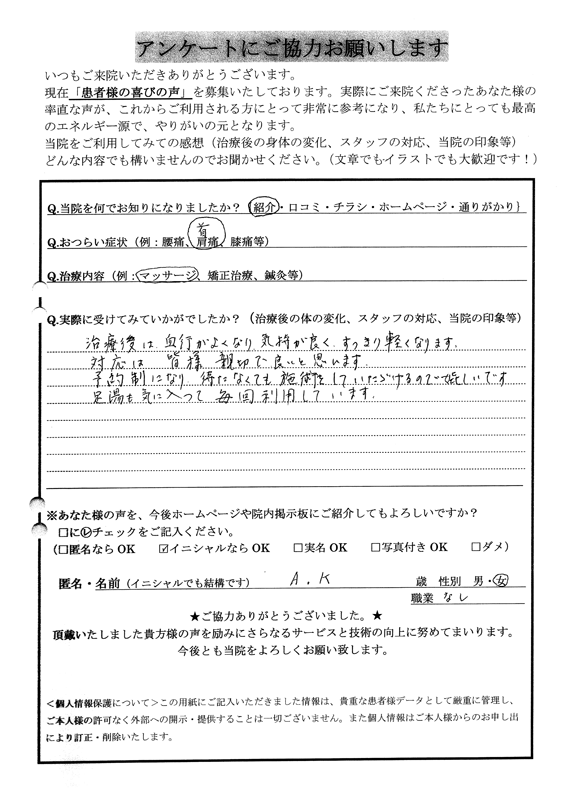 アンケートにご協力お願いします
いつもご来院いただきありがとうございます。
現在「患者様の喜びの声」を募集いたしております。実際にご来院くださったあなた様の
率直な声が、これからご利用される方にとって非常に参考になり、私たちにとっても最高
のエネルギー源で、やりがいの元となります。
当院をご利用してみての感想（治療後の身体の変化、スタッフの対応、当院の印象等）
どんな内容でも構いませんのでお聞かせください。（文章でもイラストでも大歓迎です！）
Q.当院を何でお知りになりましたか？{紹介・口コミ・チラシ・ホームページ・通りがかり}
首
Q.おつらい症状（例：腰痛、肩痛、膝痛等）
Q.治療内容（例：マッサージ、矯正治療、鍼灸等）
Q.実際に受けてみていかがでしたか？（治療後の体の変化、スタッフの対応、当院の印象等）
治療後は血行がよくなり気持が良く、すっきり軽くなります。
対応は皆様親切で良いと思います。
予約制になり待たなくても施術をしていただけるので嬉しいです
足湯も気に入って毎回利用しています。
※あなた様の声を、今後ホームページや院内掲示板にご紹介してもよろしいですか？
□に☑チェックをご記入ください。
（□匿名ならOK ☑イニシャルならOK □実名OK □写真付きOK □ダメ）
匿名・名前（イニシャルでも結構です） A.K 歳 性別 男・女
職業 なし
★ご協力ありがとうございました。★
頂戴いたしました貴方様の声を励みにさらなるサービスと技術の向上に努めてまいります。
今後とも当院をよろしくお願い致します。
＜個人情報保護について＞この用紙にご記入いただきました情報は、貴重な患者様データとして厳重に管理し、
ご本人様の許可なく外部への開示・提供することは一切ございません。また個人情報はご本人様からのお申し出
により訂正・削除いたします。